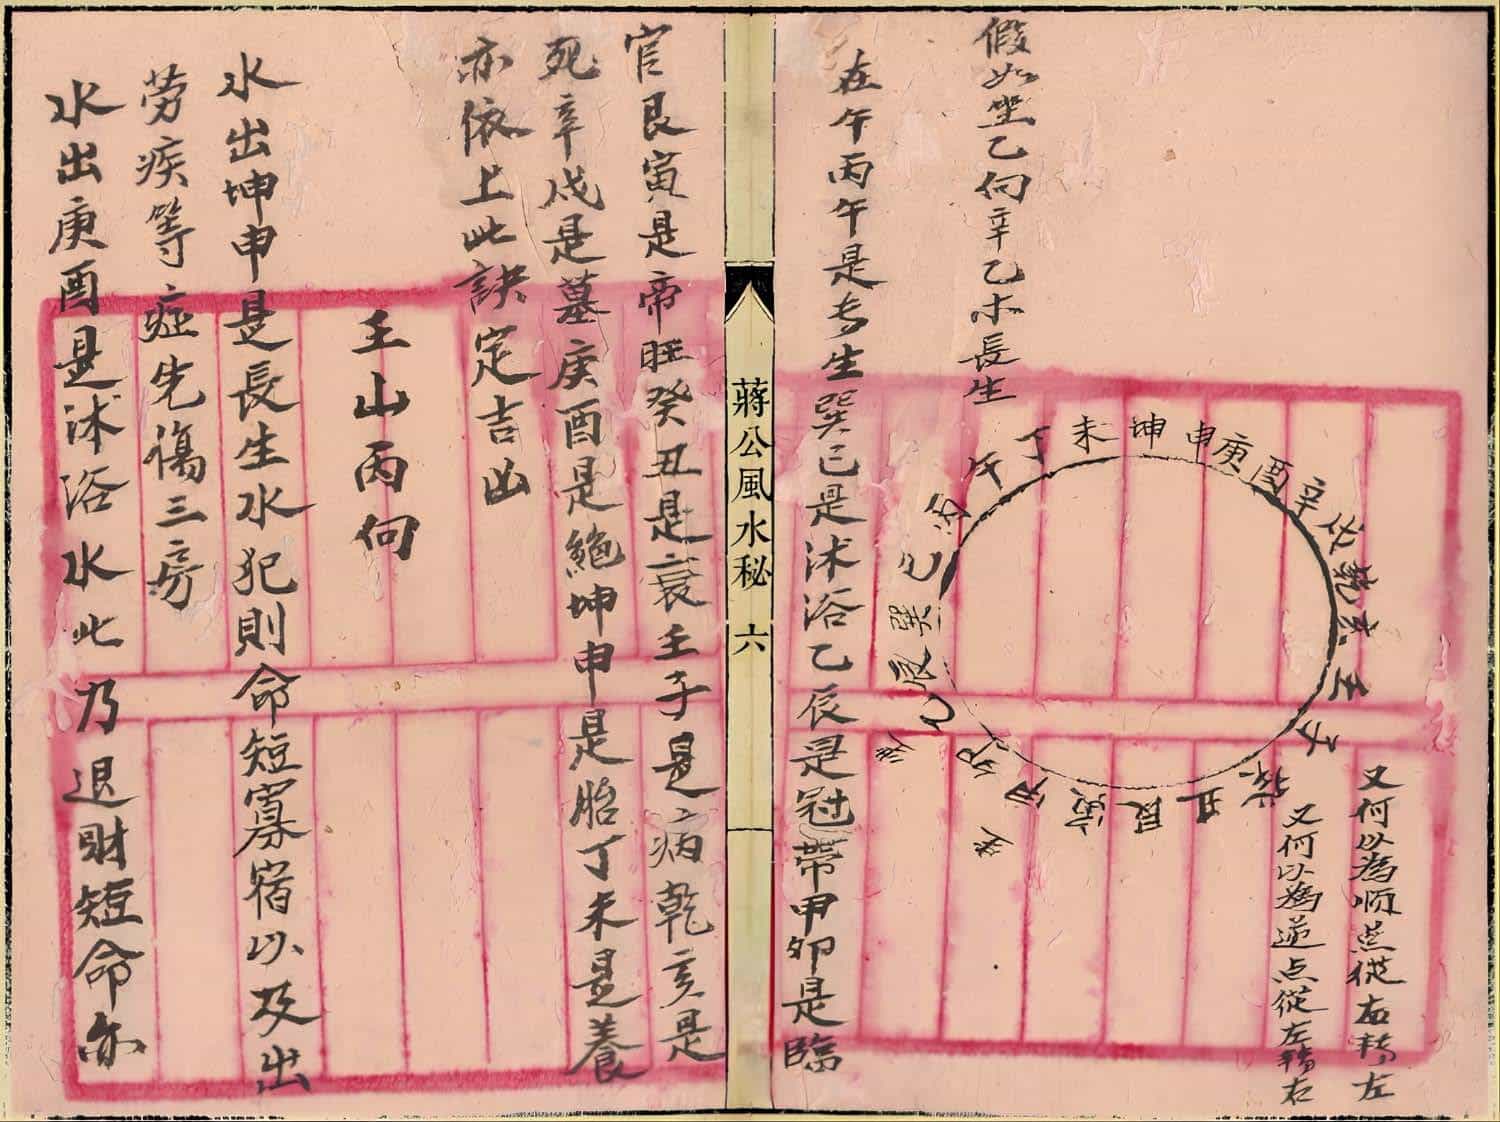 又何以為順点從右轉左
又何以為逆点從左轉右
未坤申庚酉辛戌乾亥壬子癸丑艮寅甲卯乙辰巽巳丙午丁
假如坐乙向辛乙木長生
在午丙午是長生巽巳是沭浴乙辰是冠帶甲卯是臨
蔣公風水秘 六
官艮寅是帝旺癸丑是衰壬子是病乾亥是
死辛戌是墓庚酉是絕坤申是胎丁未是養
亦依上此訣定吉凶
壬山丙向
水出坤申是長生水犯則命短寡宿以及出
劳疾等症先傷三房
水出庚酉是沭浴水此乃退財短命亦